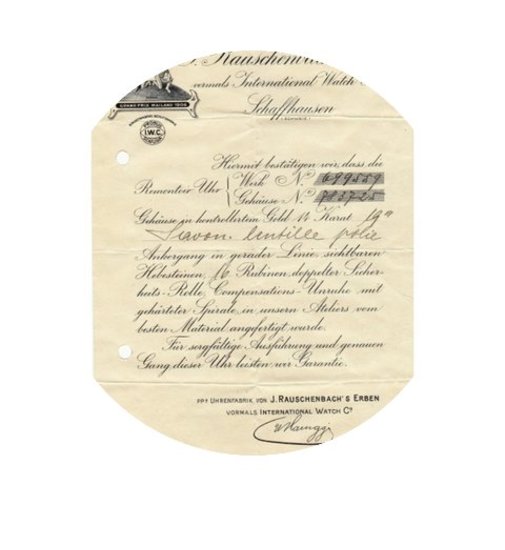 J. Rauschenbach
vormals International Watch
Schaffhausen
(SCHWEIZ)
GRAND PRIX MAILAND 1906
I.W.C.
Hiermit bestätigen wir, dass die
Remontoir Uhr Werk No. 699559
Gehäuse No. 783725
Gehäuse in kontrolliertem Gold 14 Karat 19'''
Savon. lentille polie
Ankergang in gerader Linie, sichtbaren
Hebesteinen, 16 Rubinen, doppelter Sicher-
heits-Rolle, Compensations-Unruhe mit
gehärteter Spirale, in unsern Ateliers vom
besten Material angefertigt wurde.
Für sorgfältige Ausführung und genauen
Gang dieser Uhr leisten wir Garantie.
PPA UHRENFABRIK VON J. RAUSCHENBACH'S ERBEN
VORMALS INTERNATIONAL WATCH Co